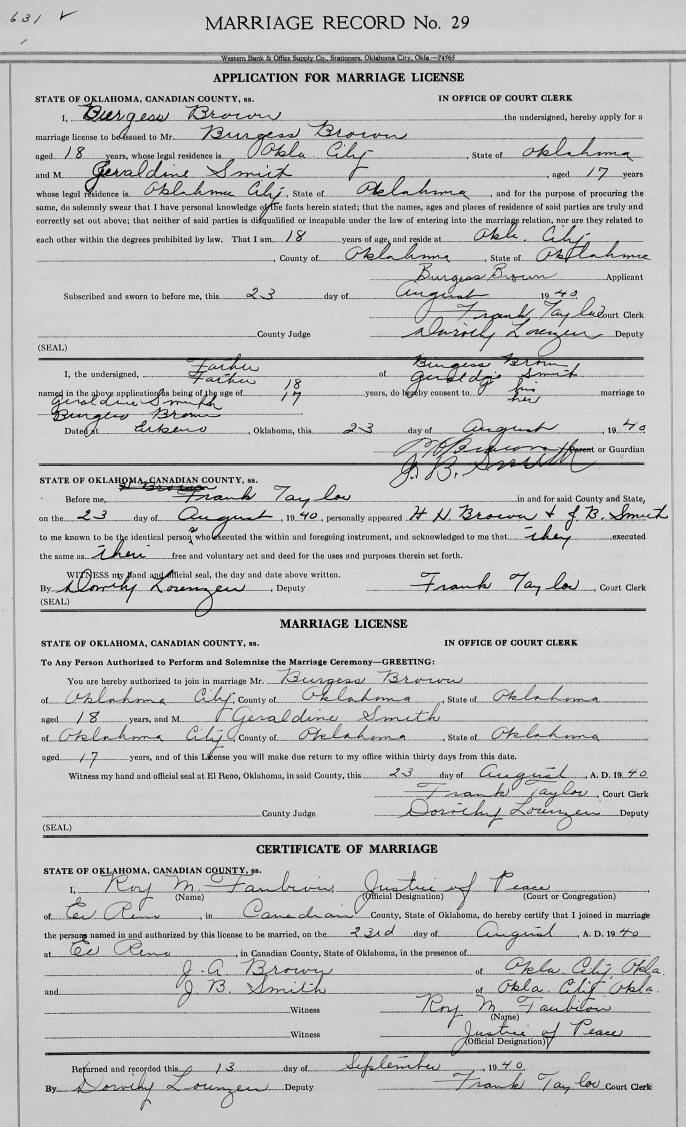 631 ✓
MARRIAGE RECORD No. 29
Western Bank & Office Supply Co., Stationers, Oklahoma City, Okla.—74565
APPLICATION FOR MARRIAGE LICENSE
STATE OF OKLAHOMA, CANADIAN COUNTY, ss. IN OFFICE OF COURT CLERK
I, Burgess Brown the undersigned, hereby apply for a
marriage license to be issued to Mr. Burgess Brown
aged 18 years, whose legal residence is Okla. City, State of Oklahoma
and M Geraldine Smith, aged 17 years
whose legal residence is Oklahoma City, State of Oklahoma, and for the purpose of procuring the
same, do solemnly swear that I have personal knowledge of the facts herein stated; that the names, ages and places of residence of said parties are truly and
correctly set out above; that neither of said parties is disqualified or incapable under the law of entering into the marriage relation, nor are they related to
each other within the degrees prohibited by law. That I am 18 years of age, and reside at Okla. City
, County of Oklahoma, State of Oklahoma
Burgess Brown Applicant
Subscribed and sworn to before me, this 23 day of August 1940
Frank Taylor Court Clerk
County Judge Dorothy Lorenzen Deputy
(SEAL)
Father Burgess Brown
I, the undersigned, Father of Geraldine Smith
named in the above application as being of the age of 18 17 years, do hereby consent to his her marriage to
Geraldine Smith
Burgess Brown
Dated at El Reno, Oklahoma, this 23 day of August, 1940
Brown Parent or Guardian
J. B. Smith
STATE OF OKLAHOMA, CANADIAN COUNTY, ss.
Before me, Frank Taylor in and for said County and State,
on the 23 day of August, 1940, personally appeared H N. Brown & J. B. Smith
to me known to be the identical persons who executed the within and foregoing instrument, and acknowledged to me that they executed
the same as their free and voluntary act and deed for the uses and purposes therein set forth.
WITNESS my hand and official seal, the day and date above written.
By Dorothy Lorenzen, Deputy Frank Taylor, Court Clerk
(SEAL)
MARRIAGE LICENSE
STATE OF OKLAHOMA, CANADIAN COUNTY, ss. IN OFFICE OF COURT CLERK
To Any Person Authorized to Perform and Solemnize the Marriage Ceremony—GREETING:
You are hereby authorized to join in marriage Mr. Burgess Brown
of Oklahoma City, County of Oklahoma, State of Oklahoma
aged 18 years, and M Geraldine Smith
of Oklahoma City, County of Oklahoma, State of Oklahoma
aged 17 years, and of this License you will make due return to my office within thirty days from this date.
Witness my hand and official seal at El Reno, Oklahoma, in said County, this 23 day of August, A. D. 1940
Frank Taylor, Court Clerk
County Judge Dorothy Lorenzen Deputy
(SEAL)
CERTIFICATE OF MARRIAGE
STATE OF OKLAHOMA, CANADIAN COUNTY, ss.
I, Roy M. Faubion Justice of Peace,
(Name) (Official Designation) (Court or Congregation)
of El Reno, in Canadian County, State of Oklahoma, do hereby certify that I joined in marriage
the persons named in and authorized by this license to be married, on the 23rd day of August, A. D. 1940
at El Reno, in Canadian County, State of Oklahoma, in the presence of
J. A. Brown of Okla. City, Okla.
and J. B. Smith of Okla. City Okla.
Witness Roy M. Faubion
(Name)
Witness Justice of Peace
(Official Designation)
Returned and recorded this 13 day of September, 1940
By Dorothy Lorenzen Deputy Frank Taylor Court Clerk